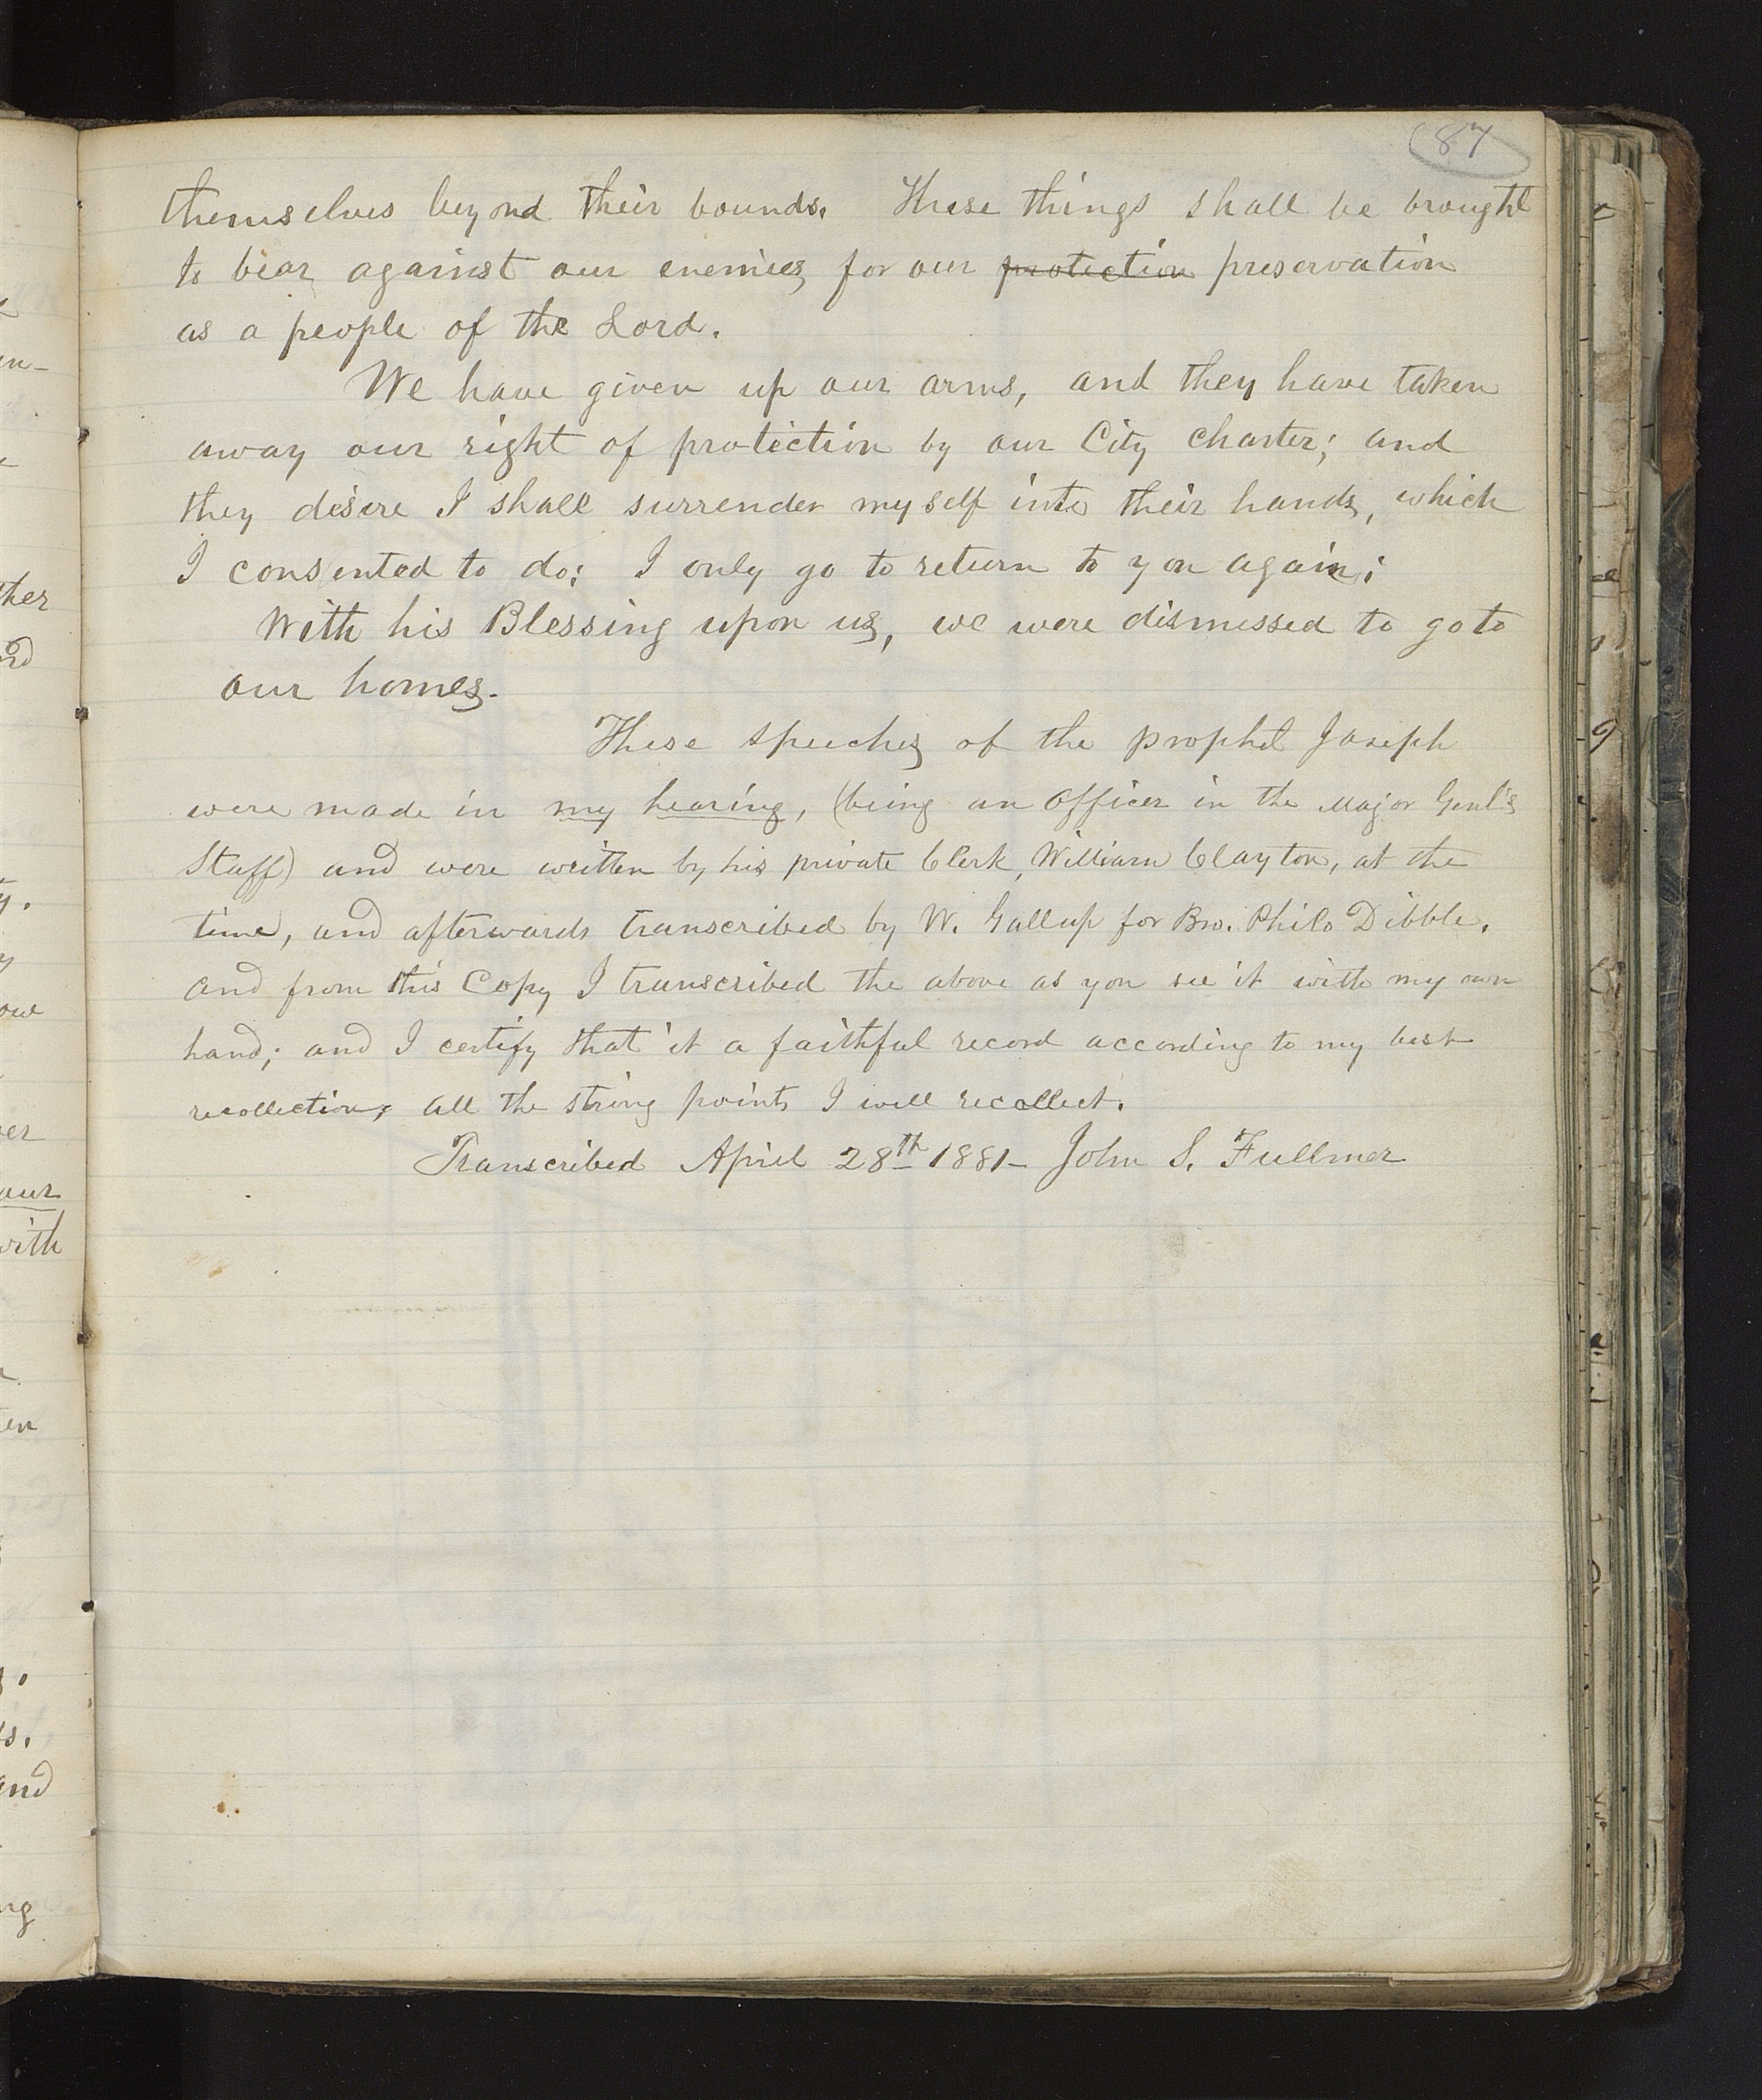 87
themselves beyond their bounds. These things shall be brought
to bear against our enemies, for our protection preservation
as a people of the Lord.
We have given up our arms, and they have taken
away our right of protection by our City charter; and
they desire I shall surrender myself into their hands, which
I consented to do; I only go to return to you again;
With his Blessing upon us, we were dismissed to go to
our homes.
These speeches of the prophet Joseph
were made in my hearing, (being an officer in the Major Genl's
Staff) and were written by his private Clerk, William Clayton, at the
time, and afterwards transcribed by W. Gallup for Bro. Philo Dibble.
and from this Copy I transcribed the above as you see it with my own
hand; and I certify that it a faithful record according to my best
recollection, all the strong points I well recollect.
Transcribed April 28th 1881- John S. Fullmer
ther
our
with